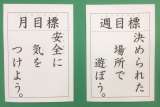 週目標
決められた
場所で
遊ぼう。
月目標
安全に
気を
つけよう。